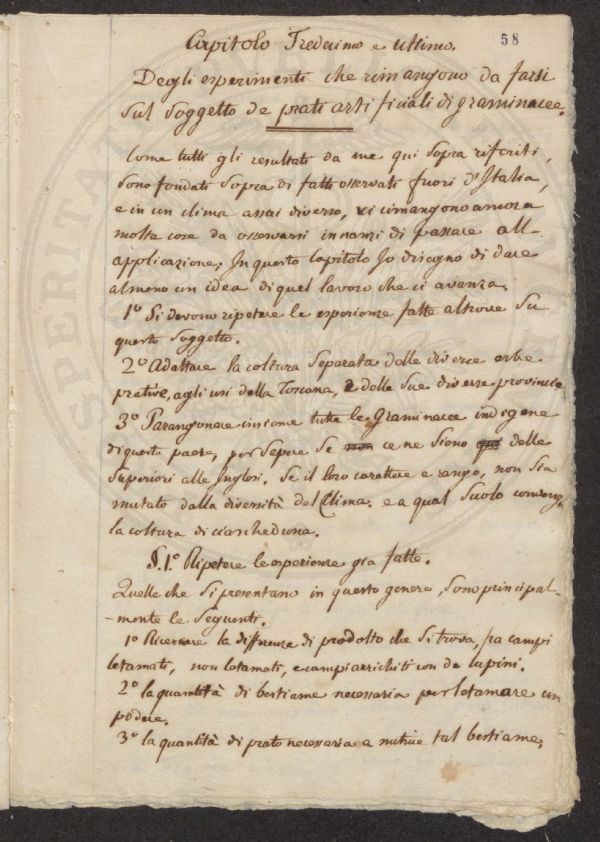 58
Capitolo Tredecimo e ultimo.
Degli esperimenti che rimangono da farsi
sul soggetto de prati artificiali di graminacee.
Come tutti gli resultati da me qui sopra riferiti,
sono fondati sopra di fatti osservati fuori d'Italia,
e in un clima assai diverso, vi rimangono ancora
molte cose da osservarsi innanzi di passare all
applicazione; In questo Capitolo Io disegno di dare
almeno un idea di quel lavoro che ci avanza.
1º Si devono ripetere le esperienze fatte altrove su
questo soggetto.
2º Adattare la coltura separata delle diverse erbe
prative, agli usi della Toscana, e delle sue diverse provincie
3º Parangonare insieme tutte le Graminacee indigene
di questo paese, per sapere se non ce ne sieno delle
superiori alle Inglesi. Se il loro carattere e rango, non sia
mutato dalla diversità del Clima. e a qual suolo conveng
la coltura di ciascheduna.
§.1.º Ripetere le esperienze gia fatte.
Quelle che si presentano in questo genere, sono principal-
-mente le seguenti.
1º Ricercare la differenze di prodotto che si trova, fra campi
letamati, non letamati, e campi arrichiti con de lupini.
2º la quantità di bestiame necessaria per letamare un
podere.
3º la quantità di prato necessaria a nutrire tal bestiame,